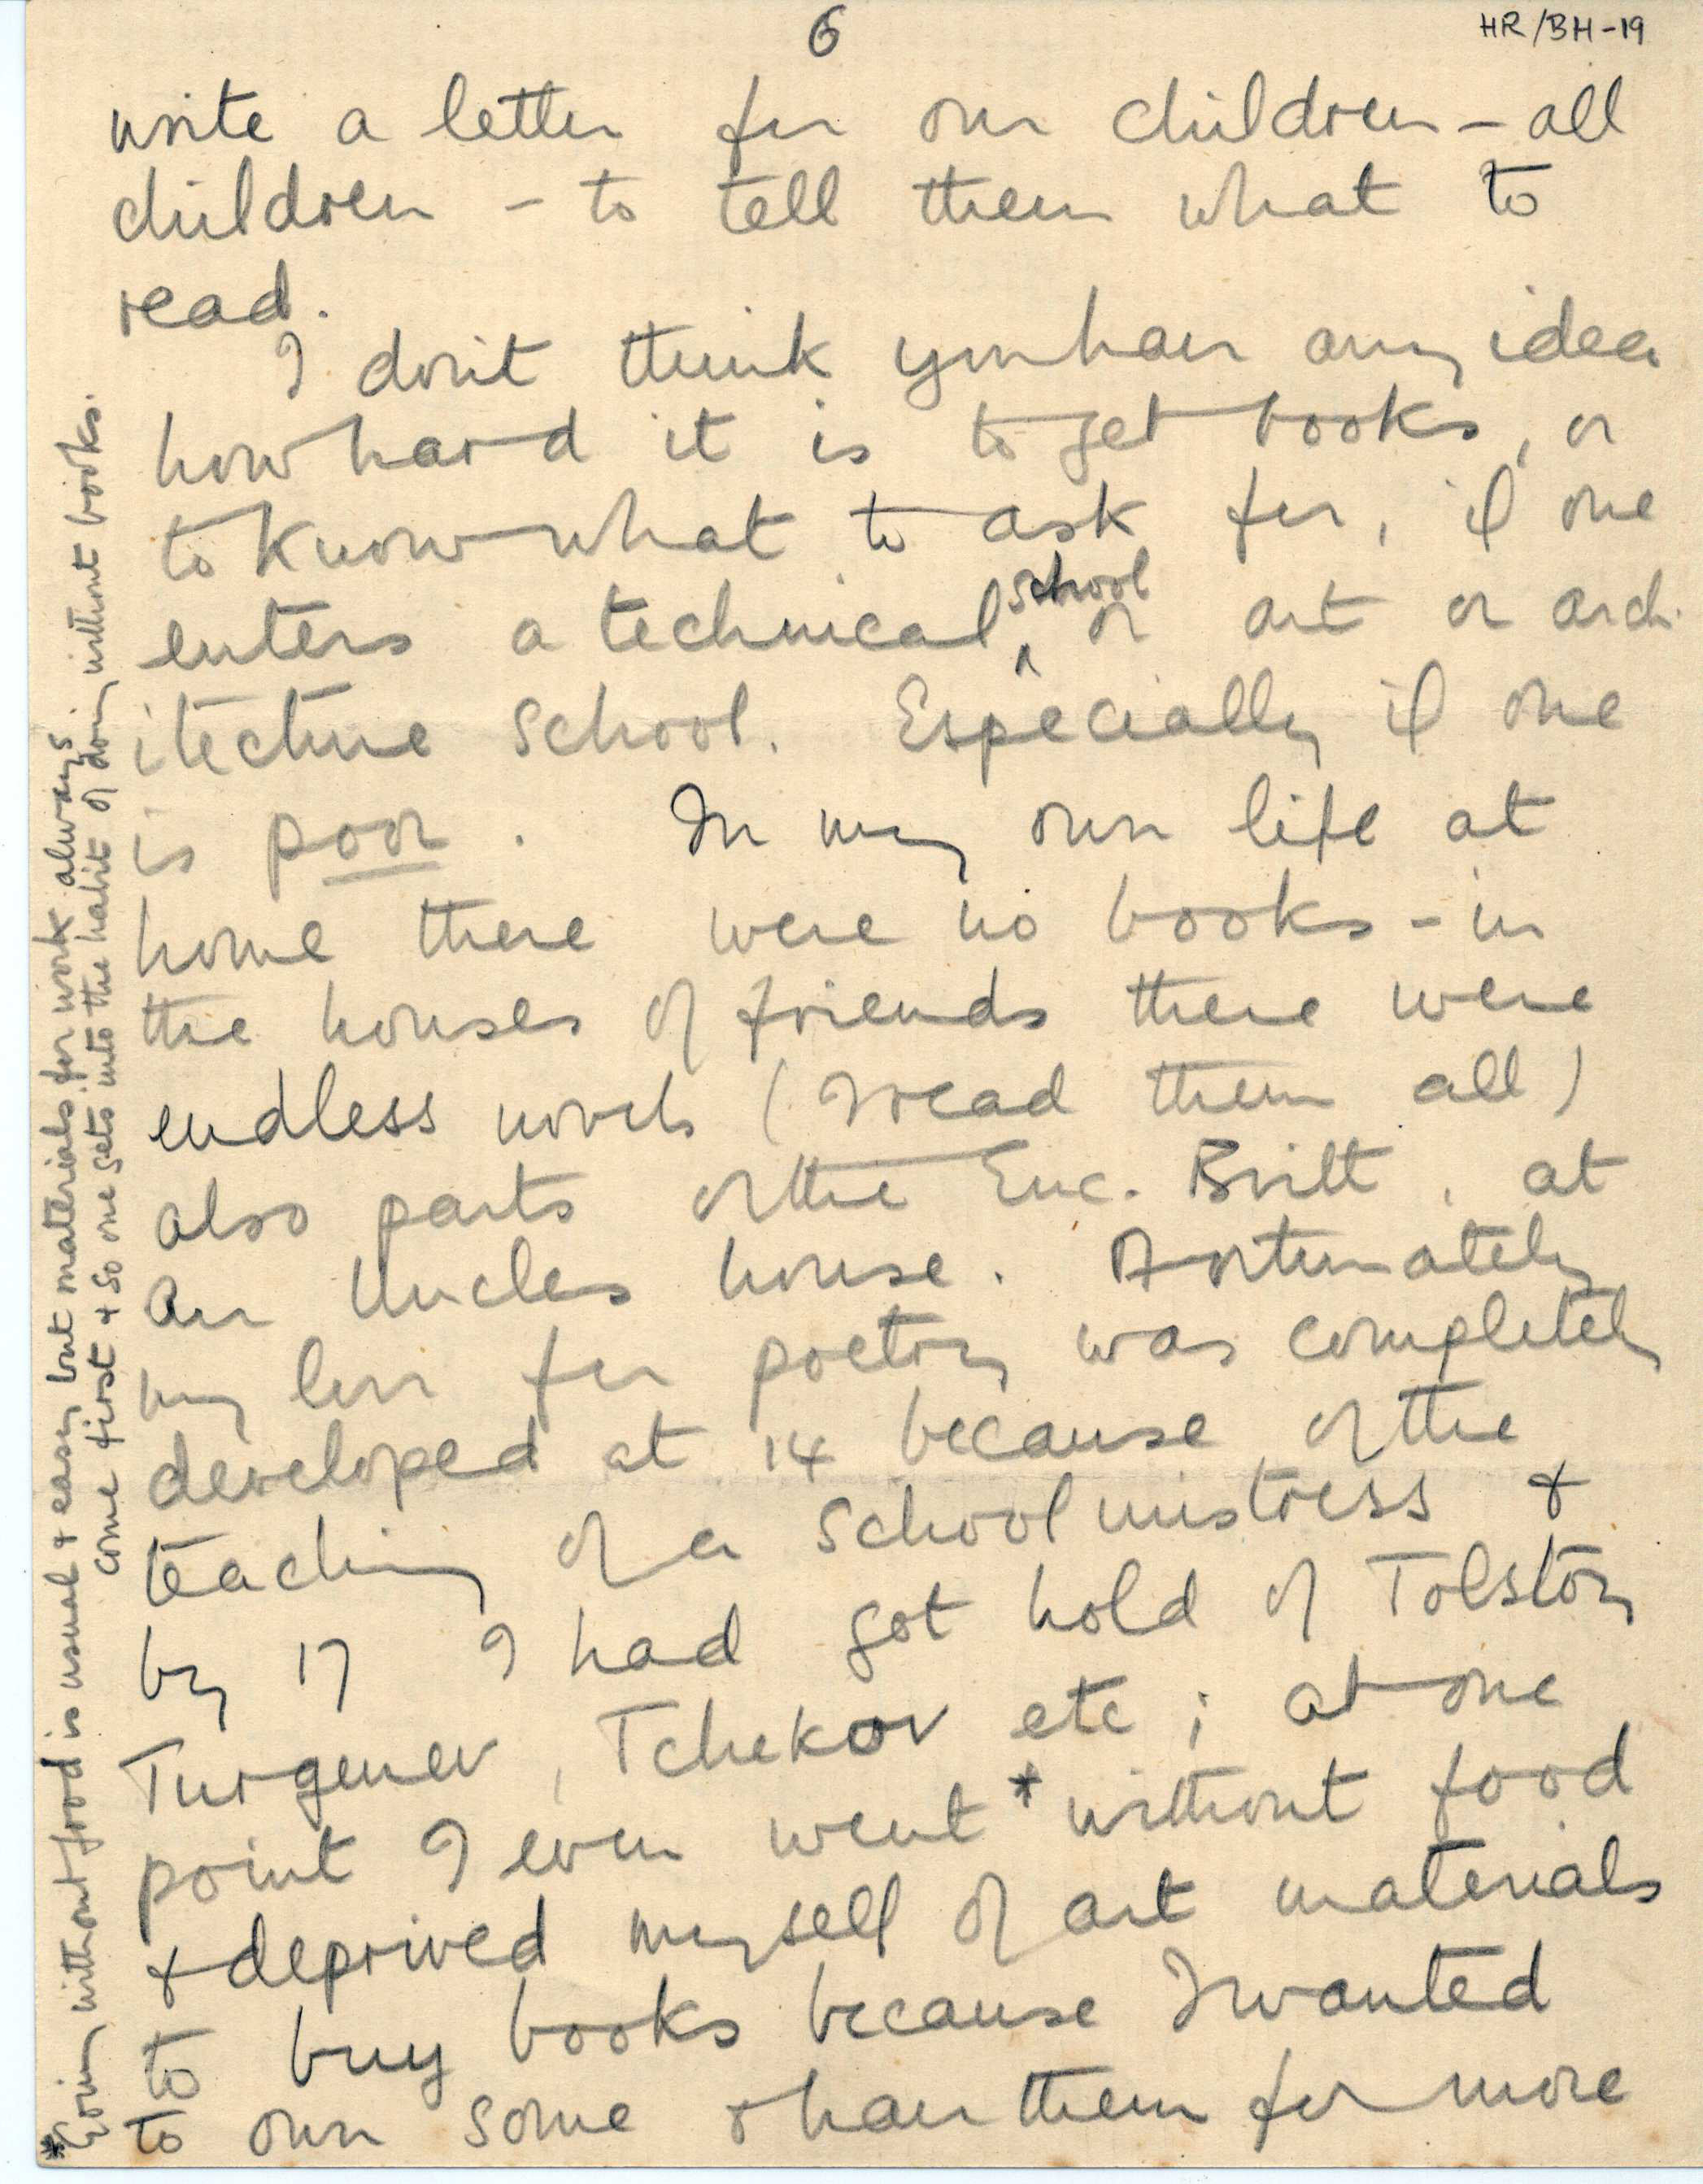 6
HR/BH-19
write a letter for our children - all
children - to tell them what to
read.
I don't think you have any idea
how hard it is to get books, or
to know what to ask for, if one
enters a technical school or art or arch-
itecture school. Especially if one
is poor. In my own life at
home there were no books - in
the houses of friends there were
endless novels (I read them all)
also parts of the Enc. Britt. at
an Uncles house. Fortunately
my love for poetry was completely
developed at 14 because of the
teaching of a schoolmistress &
by 17 I had got hold of Tolstoy
Turgenev, Tchekov etc; at one
point I even went * without food
& deprived myself of art materials
to buy books because I wanted
to own some & have them for more
* Going without food is usual & easy but materials for work always
come first & so one gets into the habit of doing without books.